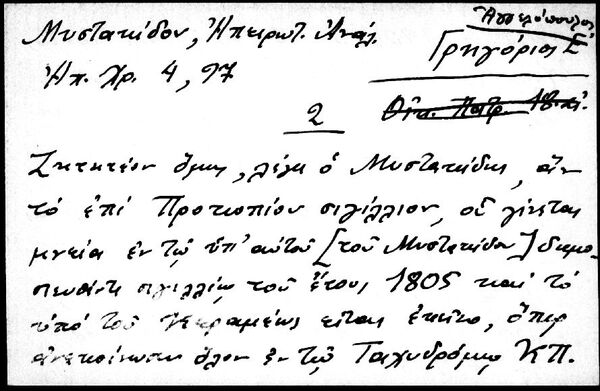 Ἀγγελόπουλος
Μυστακίδου, Ἠπειρωτ. Ἀνάλ.
Γρηγόριος Ε΄
Ἠπ. Χρ. 4, 97
Οἰκ. Πατρ. 18. αἰ.
2
Ζητητέον ὅμως, λέγει ὁ Μυστακίδης, ἂν
τὸ ἐπὶ Προκοπίου σιγίλλιον, οὗ γίνεται
μνεία ἐν τῷ ὑπ' αὐτοῦ [τοῦ Μυστακίδου] δημο-
σιευθέντι σιγιλλίῳ τοῦ ἔτους 1805 καὶ τὸ
ὑπὸ τοῦ Κεραμέως εἶναι ἐκεῖνο, ὅπερ
ἀνεκοίνωσεν ὅλον ἐν τῷ Ταχυδρόμῳ ΚΠ.